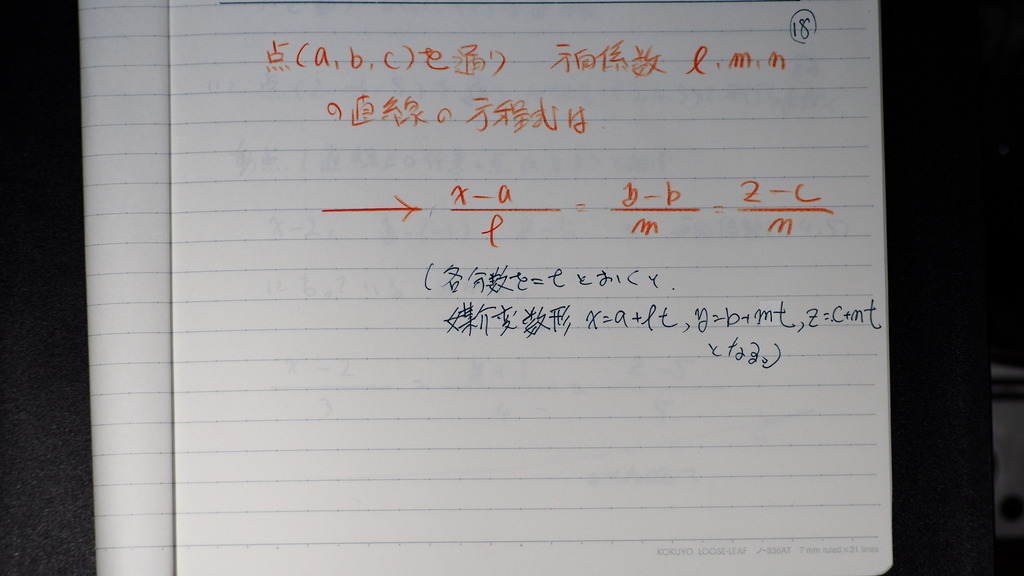 ⑱
点(a,b,c)を通り 方向係数 l,m,n
の直線の方程式は
→ (x-a)/l = (y-b)/m = (z-c)/n
(各分数を=tとおくと.
媒介変数形 x=a+lt,y=b+mt,z=c+nt
となる。)
KOKUYO LOOSE-LEAF ノ-836AT 7 mm ruled×31 lines